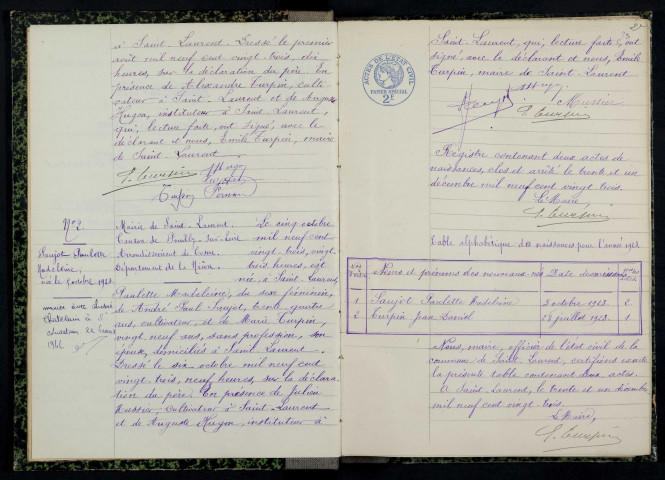 à Saint-Laurent. Dressé le premier
août mil neuf cent vingt trois, dix
heures, sur la déclaration du père. En
présence de Alexandre Turpin, culti-
vateur à Saint-Laurent et de Auguste
Hugon, instituteur à Saint-Laurent,
qui, lecture faite, ont signé, avec le
déclarant et nous, Emile Turpin, maire
de Saint-Laurent.
N°2
Saujot Paulette
Madeleine,
née le 5 octobre 1923
mariée avec
à St
22
1946
Mairie de Saint-Laurent.
Canton de Pouilly-sur-Loire
Arrondissement de Cosne.
Département de la Nièvre.
Le cinq octobre
mil neuf cent
vingt-trois, vingt
trois heures, est
née à Saint-Laurent,
Paulette Madeleine, du sexe féminin,
de André Paul Saujot, trente quatre
ans, cultivateur, et de Marie Turpin,
vingt neuf ans, sans profession, son
épouse, domiciliés à Saint-Laurent.
Dressé le six octobre mil neuf cent
vingt trois, neuf heures, sur la déclara-
tion du père. En présence de Julien
Mussier, cultivateur à Saint-Laurent
et de Auguste Hugon, instituteur à
ACTES DE L'ETAT CIVIL
PAPIER SPECIAL
2F
Saint-Laurent, qui, lecture faite, ont
signé avec le déclarant et nous, Emile
Turpin, maire de Saint-Laurent
Mussier
Registre contenant deux actes de
naissances, clos et arrêté le trente et un
décembre mil neuf cent vingt trois.
Le Maire,
Table alphabétique des naissances pour l'année 1923
Noms et prénoms des nouveaux-nés
Date des naissances
1 Saujot Paulette Madeleine 5 octobre 1923. 2
2 Turpin Jean Daniel 28 juillet 1923. 1
Nous, maire, officier de l'état civil de la
commune de Saint-Laurent, certifions exacte
la présente table contenant deux actes.
A Saint-Laurent, le trente et un décembre
mil neuf cent vingt trois.
Le Maire,